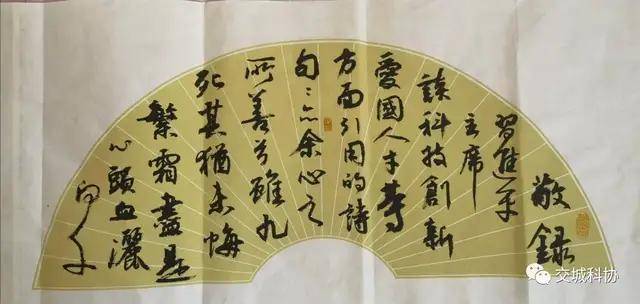 敬録
習近平
主席
談科技創新
愛國人才等
方面引用的詩
句:亦余心之
所善兮雖九
死其猶未悔
繁霜盡是
心頭血灑
向千
交城科协